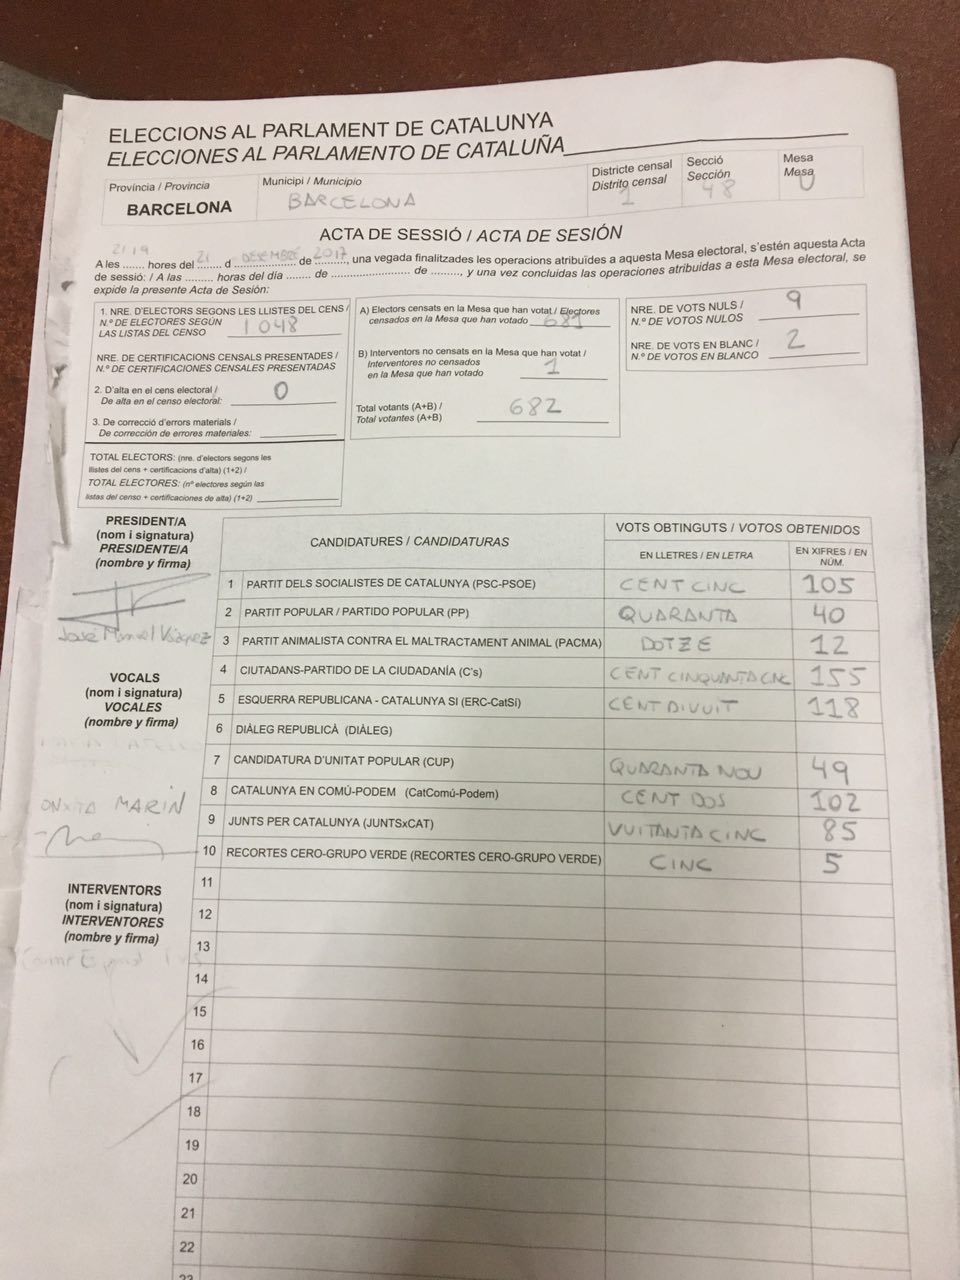 ELECCIONS AL PARLAMENT DE CATALUNYA
ELECCIONES AL PARLAMENTO DE CATALUÑA
Província / Provincia
BARCELONA
Municipi / Municipio
BARCELONA
Districte censal
Distrito censal
1
Secció
Sección
48
Mesa
Mesa
U
ACTA DE SESSIÓ / ACTA DE SESIÓN
21 19 21 DESEMBRE 2017
A les ....... hores del ....... d ................. de ........., una vegada finalitzades les operacions atribuïdes a aquesta Mesa electoral, s'estén aquesta Acta
de sessió: / A las ....... horas del día ....... de ..................... de ........., y una vez concluidas las operaciones atribuidas a esta Mesa electoral, se
expide la presente Acta de Sesión:
1. NRE. D'ELECTORS SEGONS LES LLISTES DEL CENS /
N.º DE ELECTORES SEGÚN
LAS LISTAS DEL CENSO 1048
NRE. DE CERTIFICACIONS CENSALS PRESENTADES /
N.º DE CERTIFICACIONES CENSALES PRESENTADAS
2. D'alta en el cens electoral /
De alta en el censo electoral: 0
3. De correcció d'errors materials /
De corrección de errores materiales:
TOTAL ELECTORS: (nre. d'electors segons les
llistes del cens + certificacions d'alta) (1+2) /
TOTAL ELECTORES: (nº electores según las
listas del censo + certificaciones de alta) (1+2)
A) Electors censats en la Mesa que han votat / Electores
censados en la Mesa que han votado 681
B) Interventors no censats en la Mesa que han votat /
Interventores no censados
en la Mesa que han votado 1
Total votants (A+B) /
Total votantes (A+B) 682
NRE. DE VOTS NULS /
N.º DE VOTOS NULOS 9
NRE. DE VOTS EN BLANC /
N.º DE VOTOS EN BLANCO 2
PRESIDENT/A
(nom i signatura)
PRESIDENTE/A
(nombre y firma)
José Manuel Vázquez
VOCALS
(nom i signatura)
VOCALES
(nombre y firma)
MARIN
INTERVENTORS
(nom i signatura)
INTERVENTORES
(nombre y firma)
CANDIDATURES / CANDIDATURAS
VOTS OBTINGUTS / VOTOS OBTENIDOS
EN LLETRES / EN LETRA
EN XIFRES / EN
NÚM.
1 PARTIT DELS SOCIALISTES DE CATALUNYA (PSC-PSOE) CENT CINC 105
2 PARTIT POPULAR / PARTIDO POPULAR (PP) QUARANTA 40
3 PARTIT ANIMALISTA CONTRA EL MALTRACTAMENT ANIMAL (PACMA) DOTZE 12
4 CIUTADANS-PARTIDO DE LA CIUDADANÍA (C's) CENT CINQUANTA CINC 155
5 ESQUERRA REPUBLICANA - CATALUNYA SI (ERC-CatSí) CENT DIVUIT 118
6 DIÀLEG REPUBLICÀ (DIÀLEG)
7 CANDIDATURA D'UNITAT POPULAR (CUP) QUARANTA NOU 49
8 CATALUNYA EN COMÚ-PODEM (CatComú-Podem) CENT DOS 102
9 JUNTS PER CATALUNYA (JUNTSxCAT) VUITANTA CINC 85
10 RECORTES CERO-GRUPO VERDE (RECORTES CERO-GRUPO VERDE) CINC 5
11
12
13
14
15
16
17
18
19
20
21
22
23